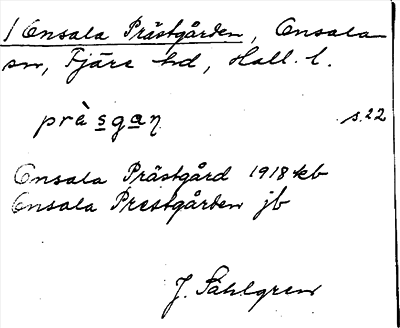 1 Onsala Prästgården, Onsala
sn, Fjäre hd, Hall. l.
prȧ̀sgan s. 22
Onsala Prästgård 1918 kb
Onsala Prestgården jb
J. Sahlgren